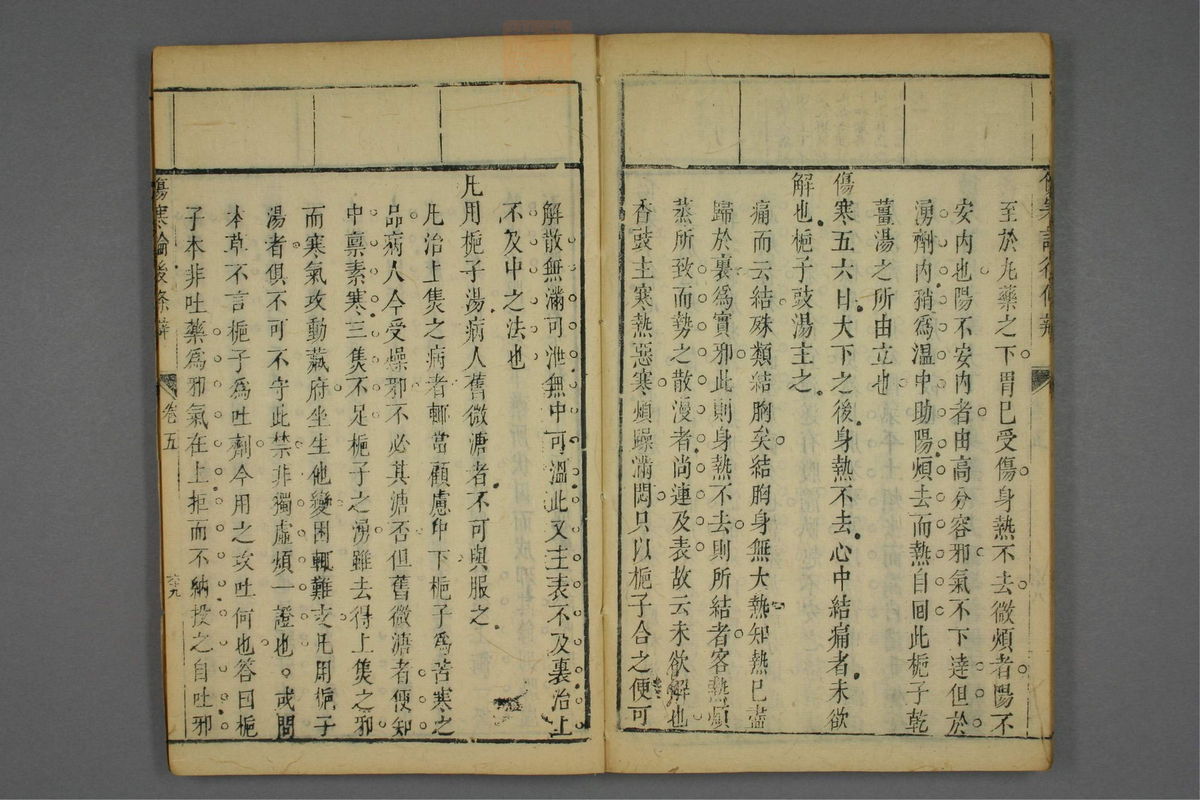 至於丸藥之下胃已受傷身熱不去微煩者陽不
安内也陽不安内者由高分容邪氣不下達但於
湧劑内稍爲温中助陽煩去而熱自囘此梔子乾
薑湯之所由立也
傷寒五六日大下之後身熱不去心中結痛者未欲
解也梔子豉湯主之
痛而云結殊類結胸矣結胸身無大熱知熱已盡
歸於裏爲實邪此則身熱不去則所結者客熱煩
蒸所致而勢之散漫者尚連及表故云未欲解也
香豉主寒熱惡寒煩躁滿悶只以梔子合之便可
解散無滿可泄無中可温此又主表不及裏治上
不及中之法也
凡用梔子湯病人舊微溏者不可與服之
凡治上焦之病者輒當顧慮中下梔子爲苦寒之
品病人今受燥邪不必其溏否但舊微溏者便知
中禀素寒三焦不足梔子之湧雖去得上焦之邪
而寒氣攻動藏府坐生他變困輒難支凡用梔子
湯者俱不可不守此禁非獨虛煩一證也。或問
本草不言梔子爲吐劑今用之攻吐何也答曰梔
子本非吐藥爲邪氣在上拒而不納投之自吐邪
傷寒論後條辨
卷五
六十九